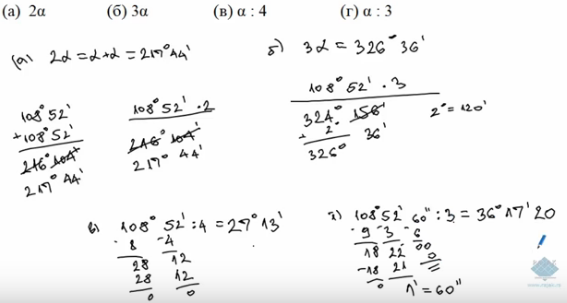 (а) 2α (б) 3α (в) α : 4 (г) α : 3
(а) 2α = α + α = 217° 44'
108° 52'
+108° 52'
216° 104'
217° 44'
108° 52' · 2
216° 104'
217° 44'
б) 3α = 326° 36'
108° 52' · 3
324° 156'
+ 2° 36'
326°
2° = 120'
в) 108° 52' : 4 = 27° 13'
- 8 - 4
28 12
28 12
0 0
г) 108° 52' 60'' : 3 = 36° 17' 20
- 9 - 3 - 6
18 22 00
- 18 21 0
0 1' = 60''